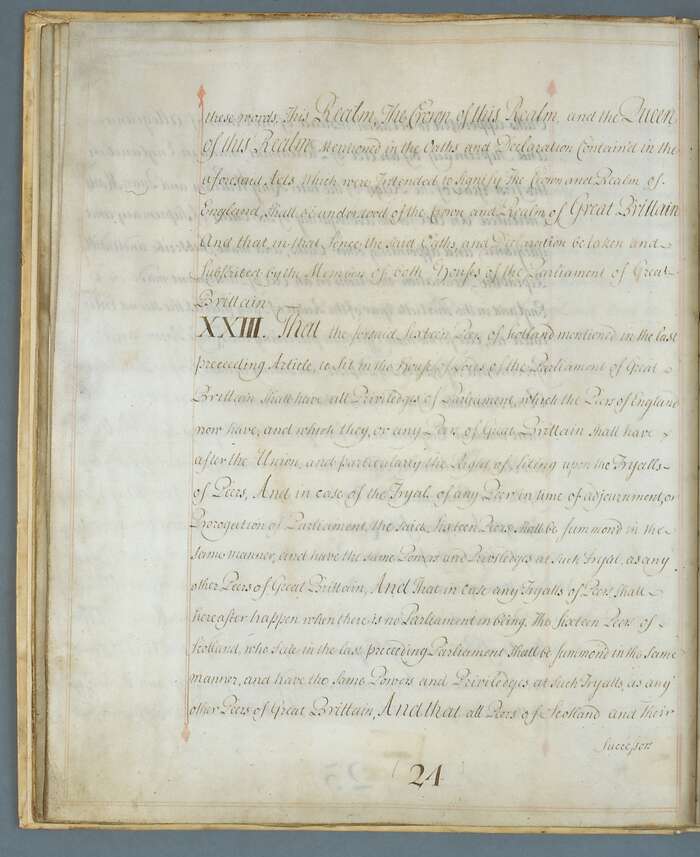 these words, This Realm, The Crown of this Realm, and the Queen
of this Realm, Mentioned in the Oaths and Declaration Contain'd in the
aforesaid Acts, which were Intended to Signify The Crown and Realm of
England, Shall be understood of the Crown and Realm of Great Brittain
And that in that sence, the said Oaths, and Declaration be taken and
Subscribed by the Members of both Houses of the Parliament of Great
Brittain
XXIII. That the forsaid Sixteen Peers of Scotland mentioned in the last
preceeding Article, to Sit in the House of Lords of the Parliament of Great
Brittain Shall have all Priviledges of Parliament, which the Peers of England
now have, and which they, or any Peers of Great Brittain Shall have
after the Union, and particularly the Right of Siting upon the Tryalls
of Peers, And in case of the Tryal of any Peer in time of adjournment, or
Prorogation of Parliament, the said Sixteen Peers shall be summond in the
same manner, and have the same Powers and Priviledges at such Tryal, as any
other Peers of Great Brittain, And That in case any Tryalls of Peers shall
hereafter happen when there is no Parliament in being, The Sixteen Peers of
Scotland, who Sate in the last preceeding Parliament Shall be summond in the same
manner, and have the same Powers and Priviledges at such Tryalls, as any
other Peers of Great Brittain, And that all Peers of Scotland and their
Successors
24